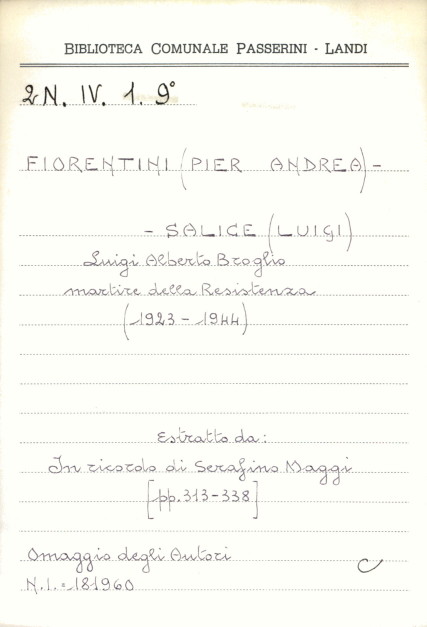 BIBLIOTECA COMUNALE PASSERINI - LANDI
2N. IV. 1. 9°
FIORENTINI (PIER ANDREA) -
- SALICE (LUIGI)
Luigi Alberto Broglio
martire della Resistenza
(1923 - 1944)
Estratto da:
In ricordo di Serafino Maggi
[pp. 313-338]
Omaggio degli Autori
C
N.I. = 181960